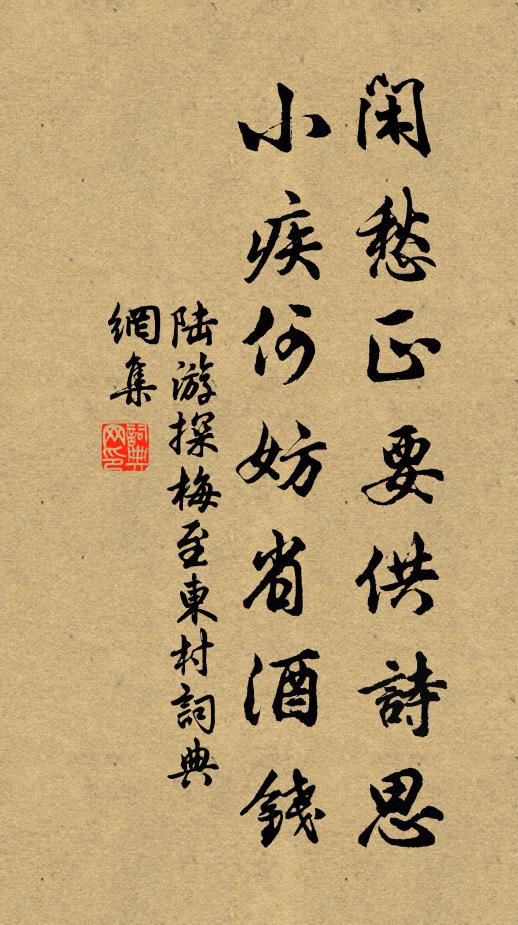 閑愁正要供詩思
小疾何妨省酒錢
陸游探梅至東村詞典
網集
詞典網印